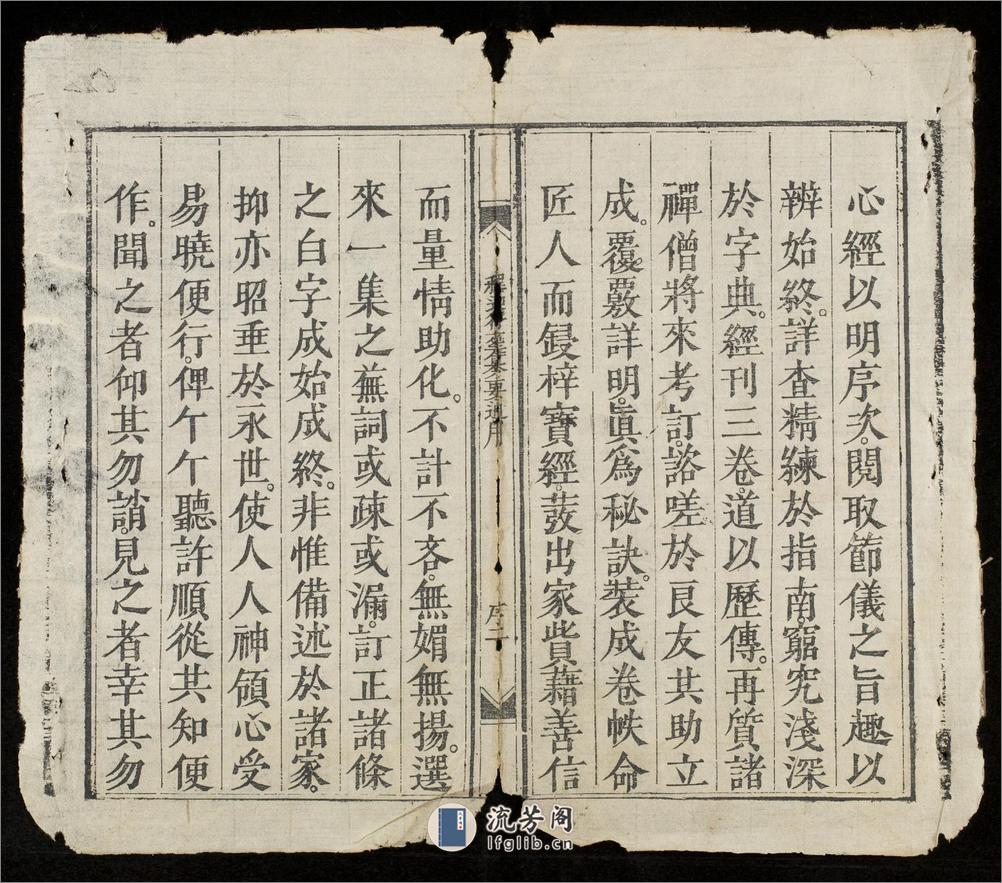 心經以明序次。閱取節儀之旨趣以
辨始終。詳查精練於指南。窮究淺深
於字典。經刊三卷。道以歷傳。再質諸
禪僧將來考訂。諮嗟於良友共助立
成。覆覈詳明。眞爲秘訣。裝成卷帙命
匠人而鋟梓寳經。發出家貲藉善信
序二
而量情助化。不計不吝。無媚無揚。選
來一集之蕪詞或疎或漏。訂正諸條
之白字成始成終。非惟備述於諸家。
抑亦昭垂於永世。使人人神領心受
易曉便行。俾个个聽許順從共知便
作。聞之者仰其勿誚。見之者幸其勿
流芳阁
lfglib.cn